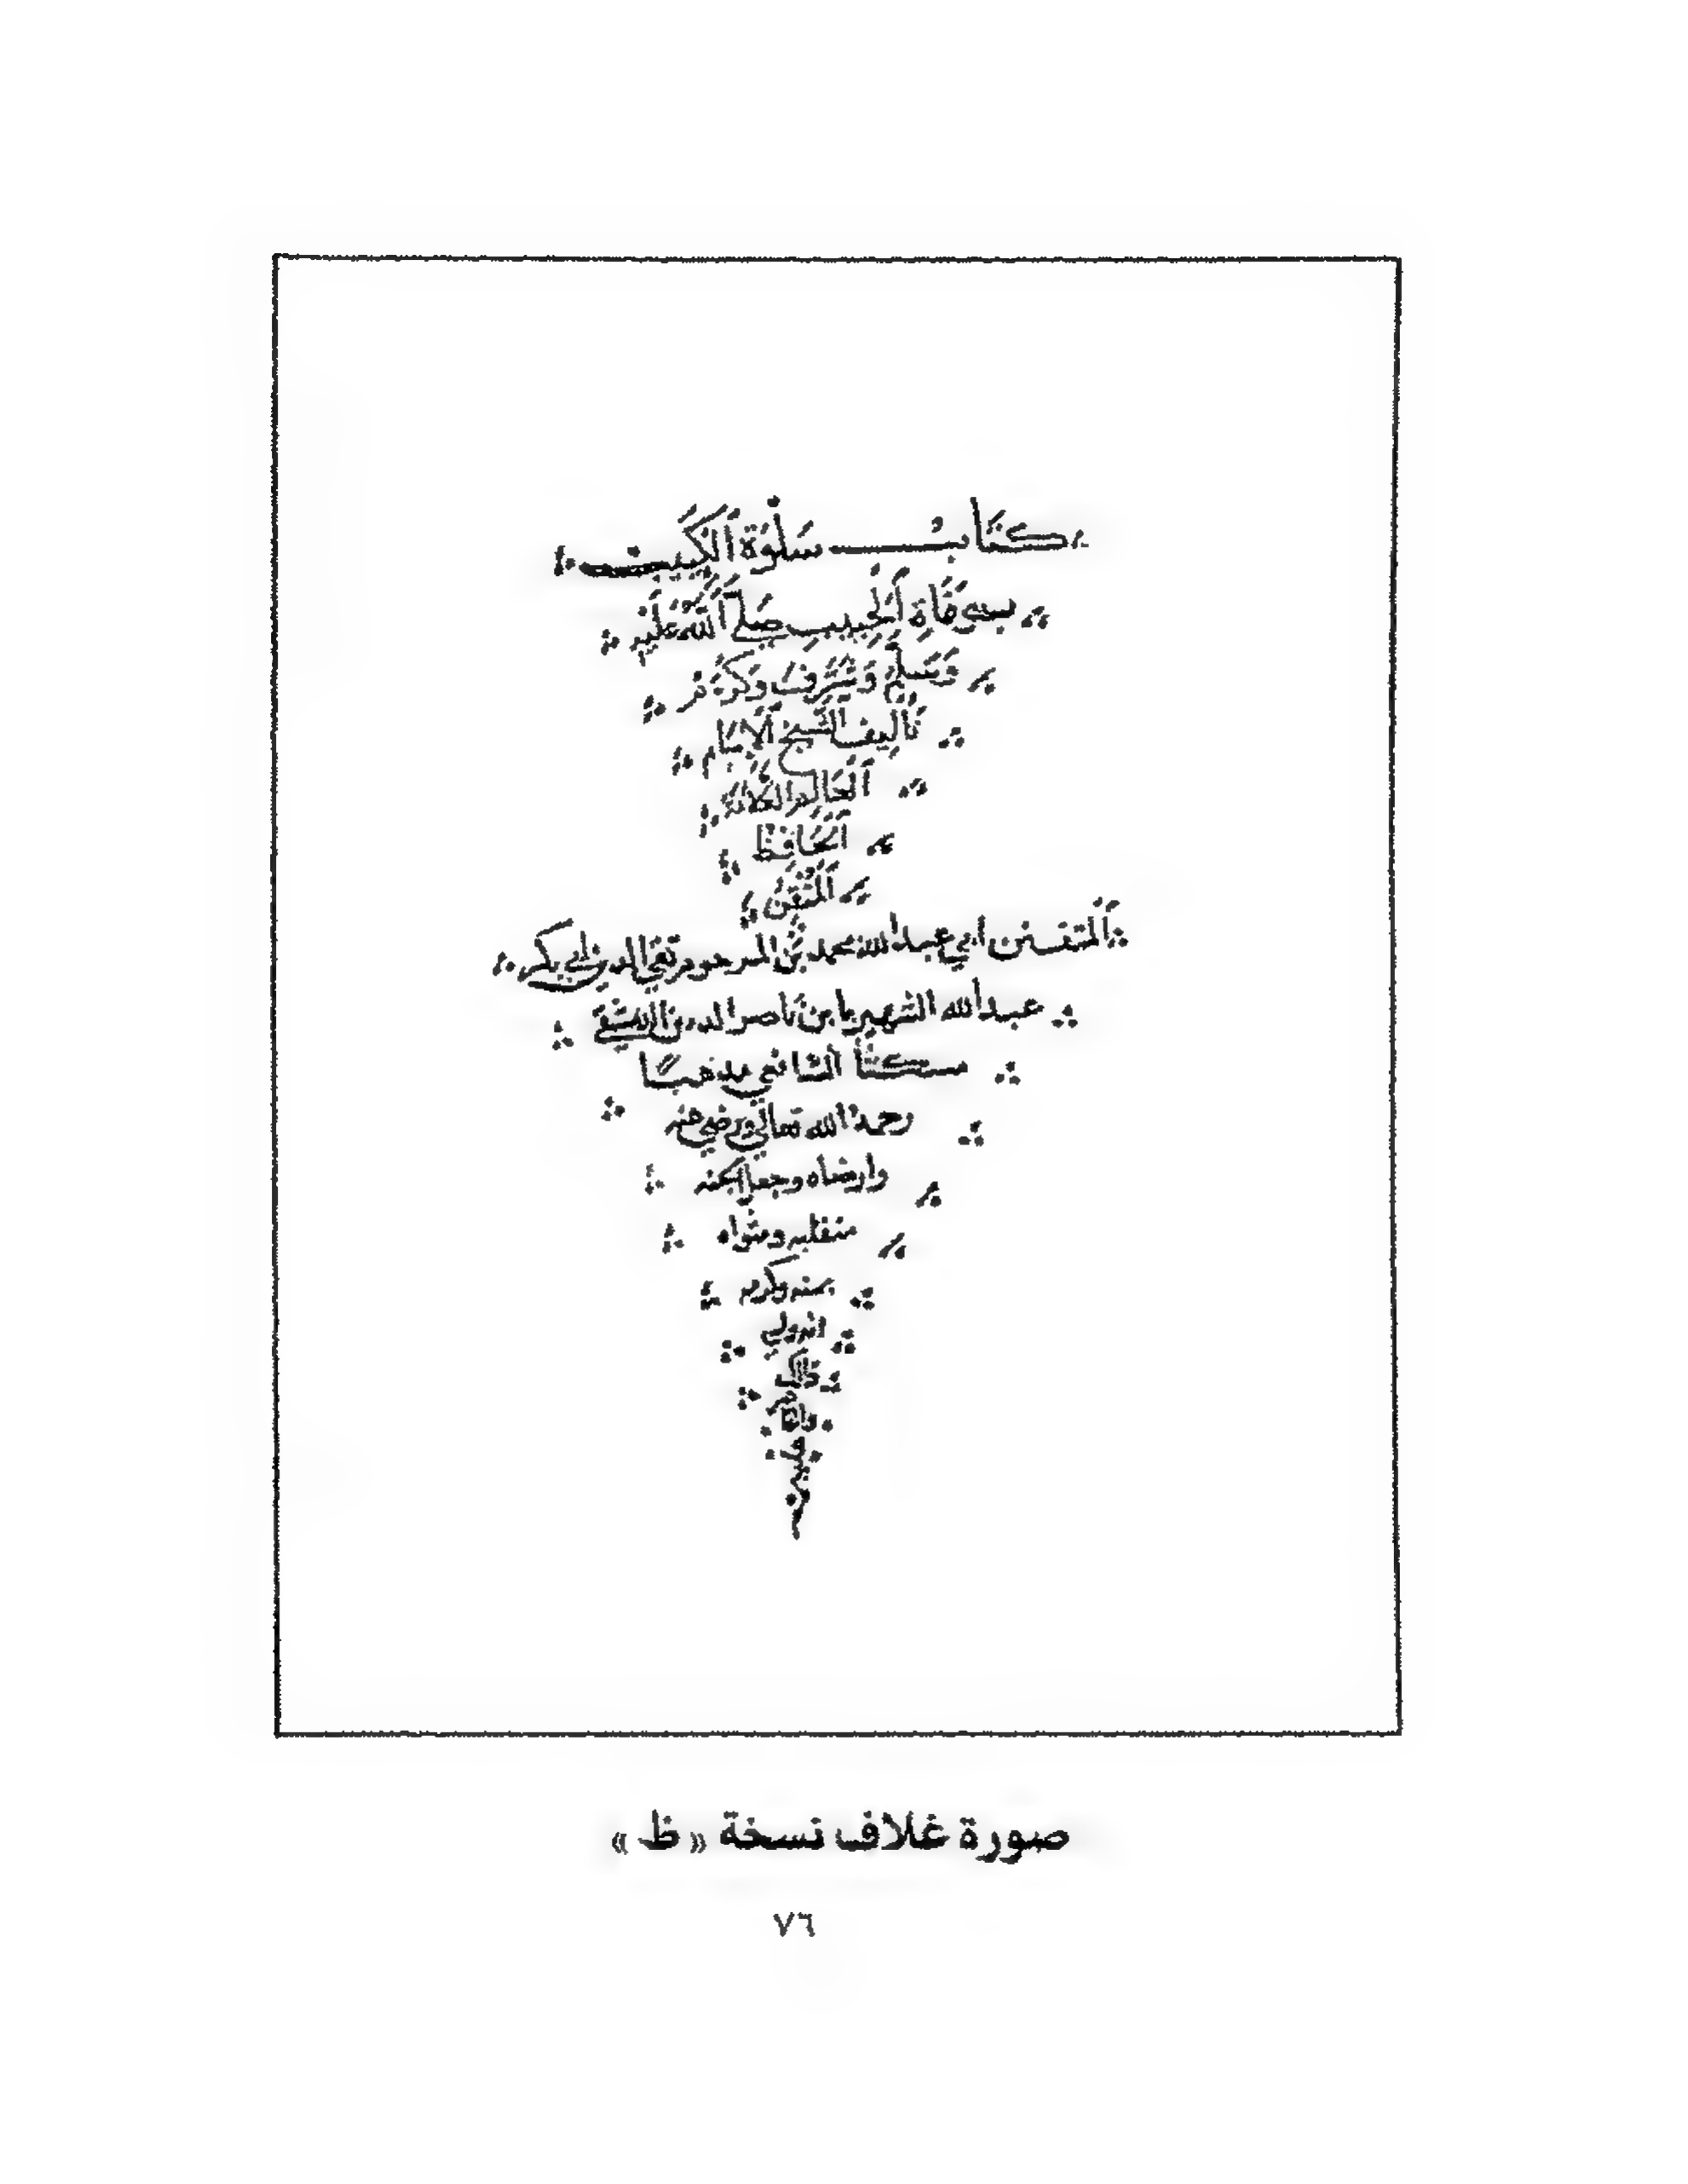 كتاب سَلْوَة الكَئِيب
بوفاة الحبيب صلى الله عليه
وسلم وشرف وكرم
تأليف الشيخ الإمام
العالم العلامة
الحافظ
المتقن
المتفنن ابي عبد الله محمد بن المرحوم تقي الدين ابي بكر
عبد الله الشهير بابن ناصر الدين الدمشقي
مسكنًا الشافعي مذهبًا
رحمه الله تعالى ورضي عنه
وارضاه وجعل الجنة
منقلبه ومثواه
بمنه وكرمه
انه ولي
ذلك
والقادر
عليه
صورة غلاف نسخة « ظ »
٧٦